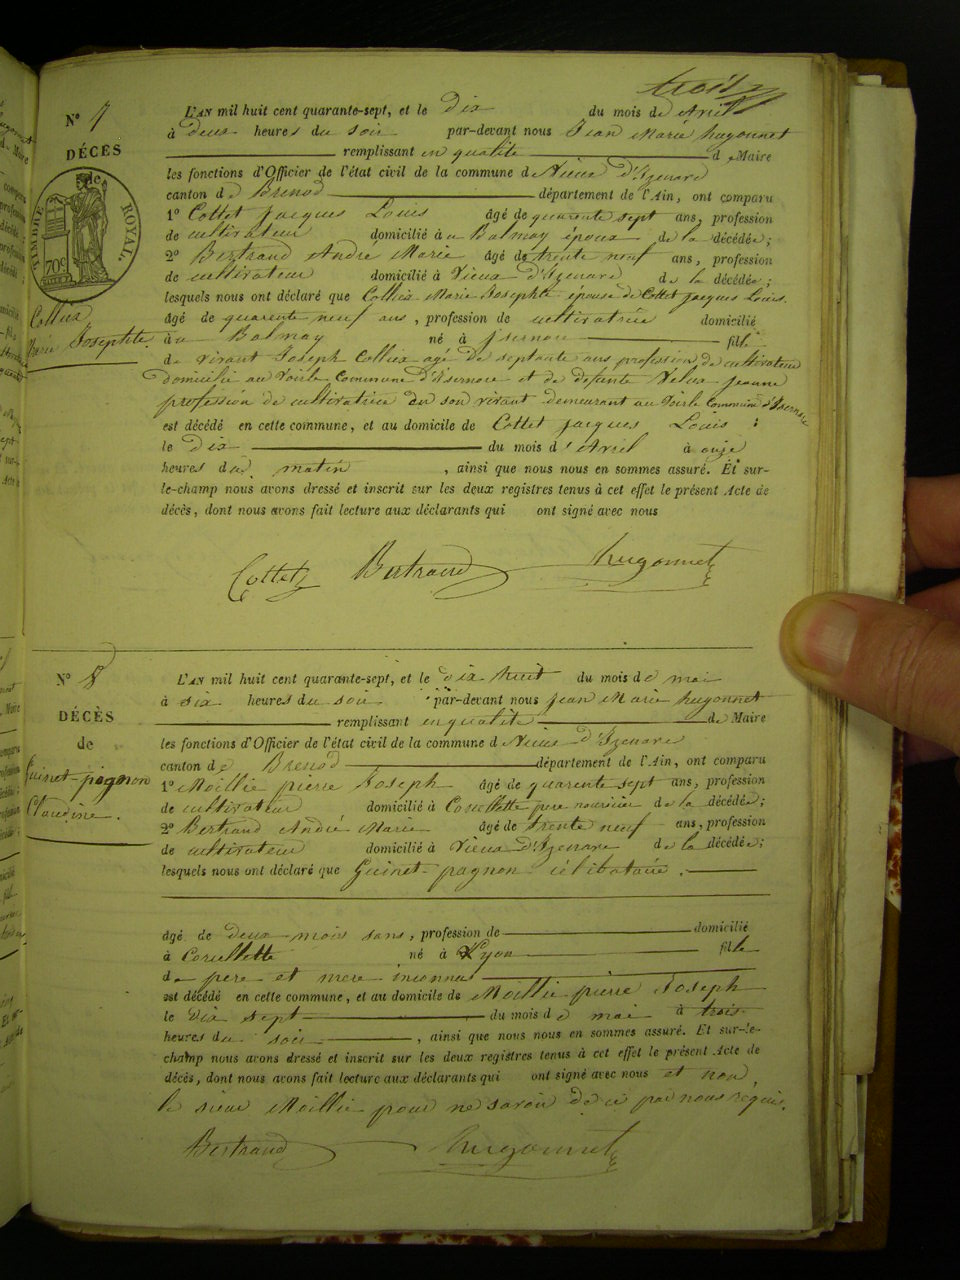 trois
N° 7
DÉCÈS
TIMBRE ROYAL.
70c
Collia
Marie Josephte.
L'AN mil huit cent quarante-sept, et le dix du mois de Avril
à deux heures du soir par-devant nous Jean Marie hugonnet
remplissant en qualité d Maire
les fonctions d'Officier de l'état civil de la commune de Vieux d'Izenard
canton de Brenod département de l'Ain, ont comparu
1° Cottet jacques Louis âgé de quarente sept ans, profession
de cultivateur domicilié au Balmay époux de la décédée;
2° Bertrand André Marie âgé de trente neuf ans, profession
de cultivateur domicilié à Vieux d'Izenard de la décédée;
lesquels nous ont déclaré que Collia Marie Josephte épouse de Cottet jacques Louis.
âgé de quarente neuf ans, profession de cultivatrice domicilié
au Balmay né à jsernore fille
de vivant Joseph Collia agé de septante ans profession de cultivateur
domicilié au Voirle Commune d'Isernore et de defunte Velus jeanne
profession de cultivatrice du son vivant demeurant au Voirle Commune d'Isernore
est décédé en cette commune, et au domicile de Cottet jacques Louis ;
le Dix du mois d'Avril à onze
heures du matin, ainsi que nous nous en sommes assuré. Et sur-
le-champ nous avons dressé et inscrit sur les deux registres tenus à cet effet le présent Acte de
décès, dont nous avons fait lecture aux déclarants qui ont signé avec nous
Cottet Bertrand hugonnet
N° 8
DÉCÈS
de
Guinet-pagnon
Claudine.
L'AN mil huit cent quarante-sept, et le dix huit du mois de mai
à six heures du soir par-devant nous jean Marie hugonnet
remplissant en qualité de Maire
les fonctions d'Officier de l'état civil de la commune d Vieux d'Izenare
canton de Brenod département de l'Ain, ont comparu
1° Moillie pierre Joseph âgé de quarente sept ans, profession
de cultivateur domicilié à Corcellette pere nouricier de la décédée;
2° Bertrand André Marie âgé de trente neuf ans, profession
de cultivateur domicilié à Vieux d'Izenare de la décédée;
lesquels nous ont déclaré que Guinet-pagnon célibataire.
âgé de deux mois sans, profession de domicilié
à Corcellette né à Lyon fille
de pere et mere inconnus
est décédé en cette commune, et au domicile de Moillie pierre Joseph
le dix sept du mois de mai à trois
heures du soir, ainsi que nous nous en sommes assuré. Et sur-le-
champ nous avons dressé et inscrit sur les deux registres tenus à cet effet le présent Acte de
décès, dont nous avons fait lecture aux déclarants qui ont signé avec nous et non
le sieur Moillie pour ne savoir de ce par nous requis.
Bertrand hugonnet